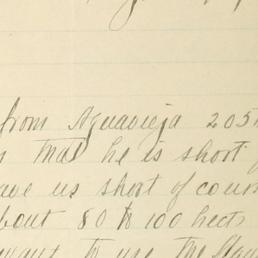 from Aguavieja 205
that he is short
us short of
about 80 to 100 hects
want to use the